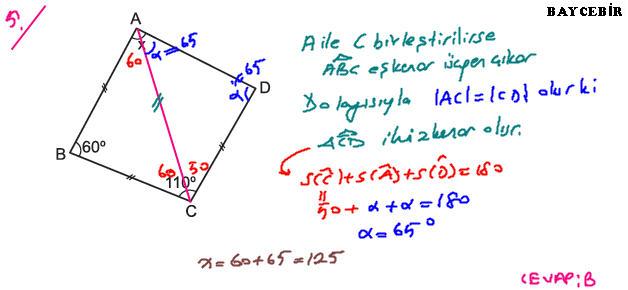 BAYCEBİR
5.
A
60
α = 65
65
α
D
B
60°
60
50
110°
C
A ile C birleştirilirse
ABC eşkenar üçgen çıkar
Dolayısıyla |AC| = |CD| olur ki
ACD ikizkenar olur.
s(Ĉ)+s(Â)+s(D̂)=180
50+ α+α=180
α=65°
x=60+65=125
CEVAP:B